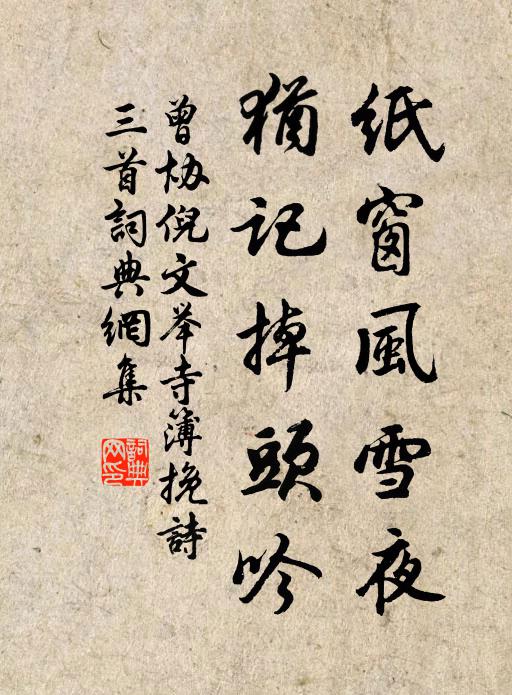 紙窗風雪夜
猶記掉頭吟
曾協倪文举寺簿挽詩
三首詞典網集
詞典網印